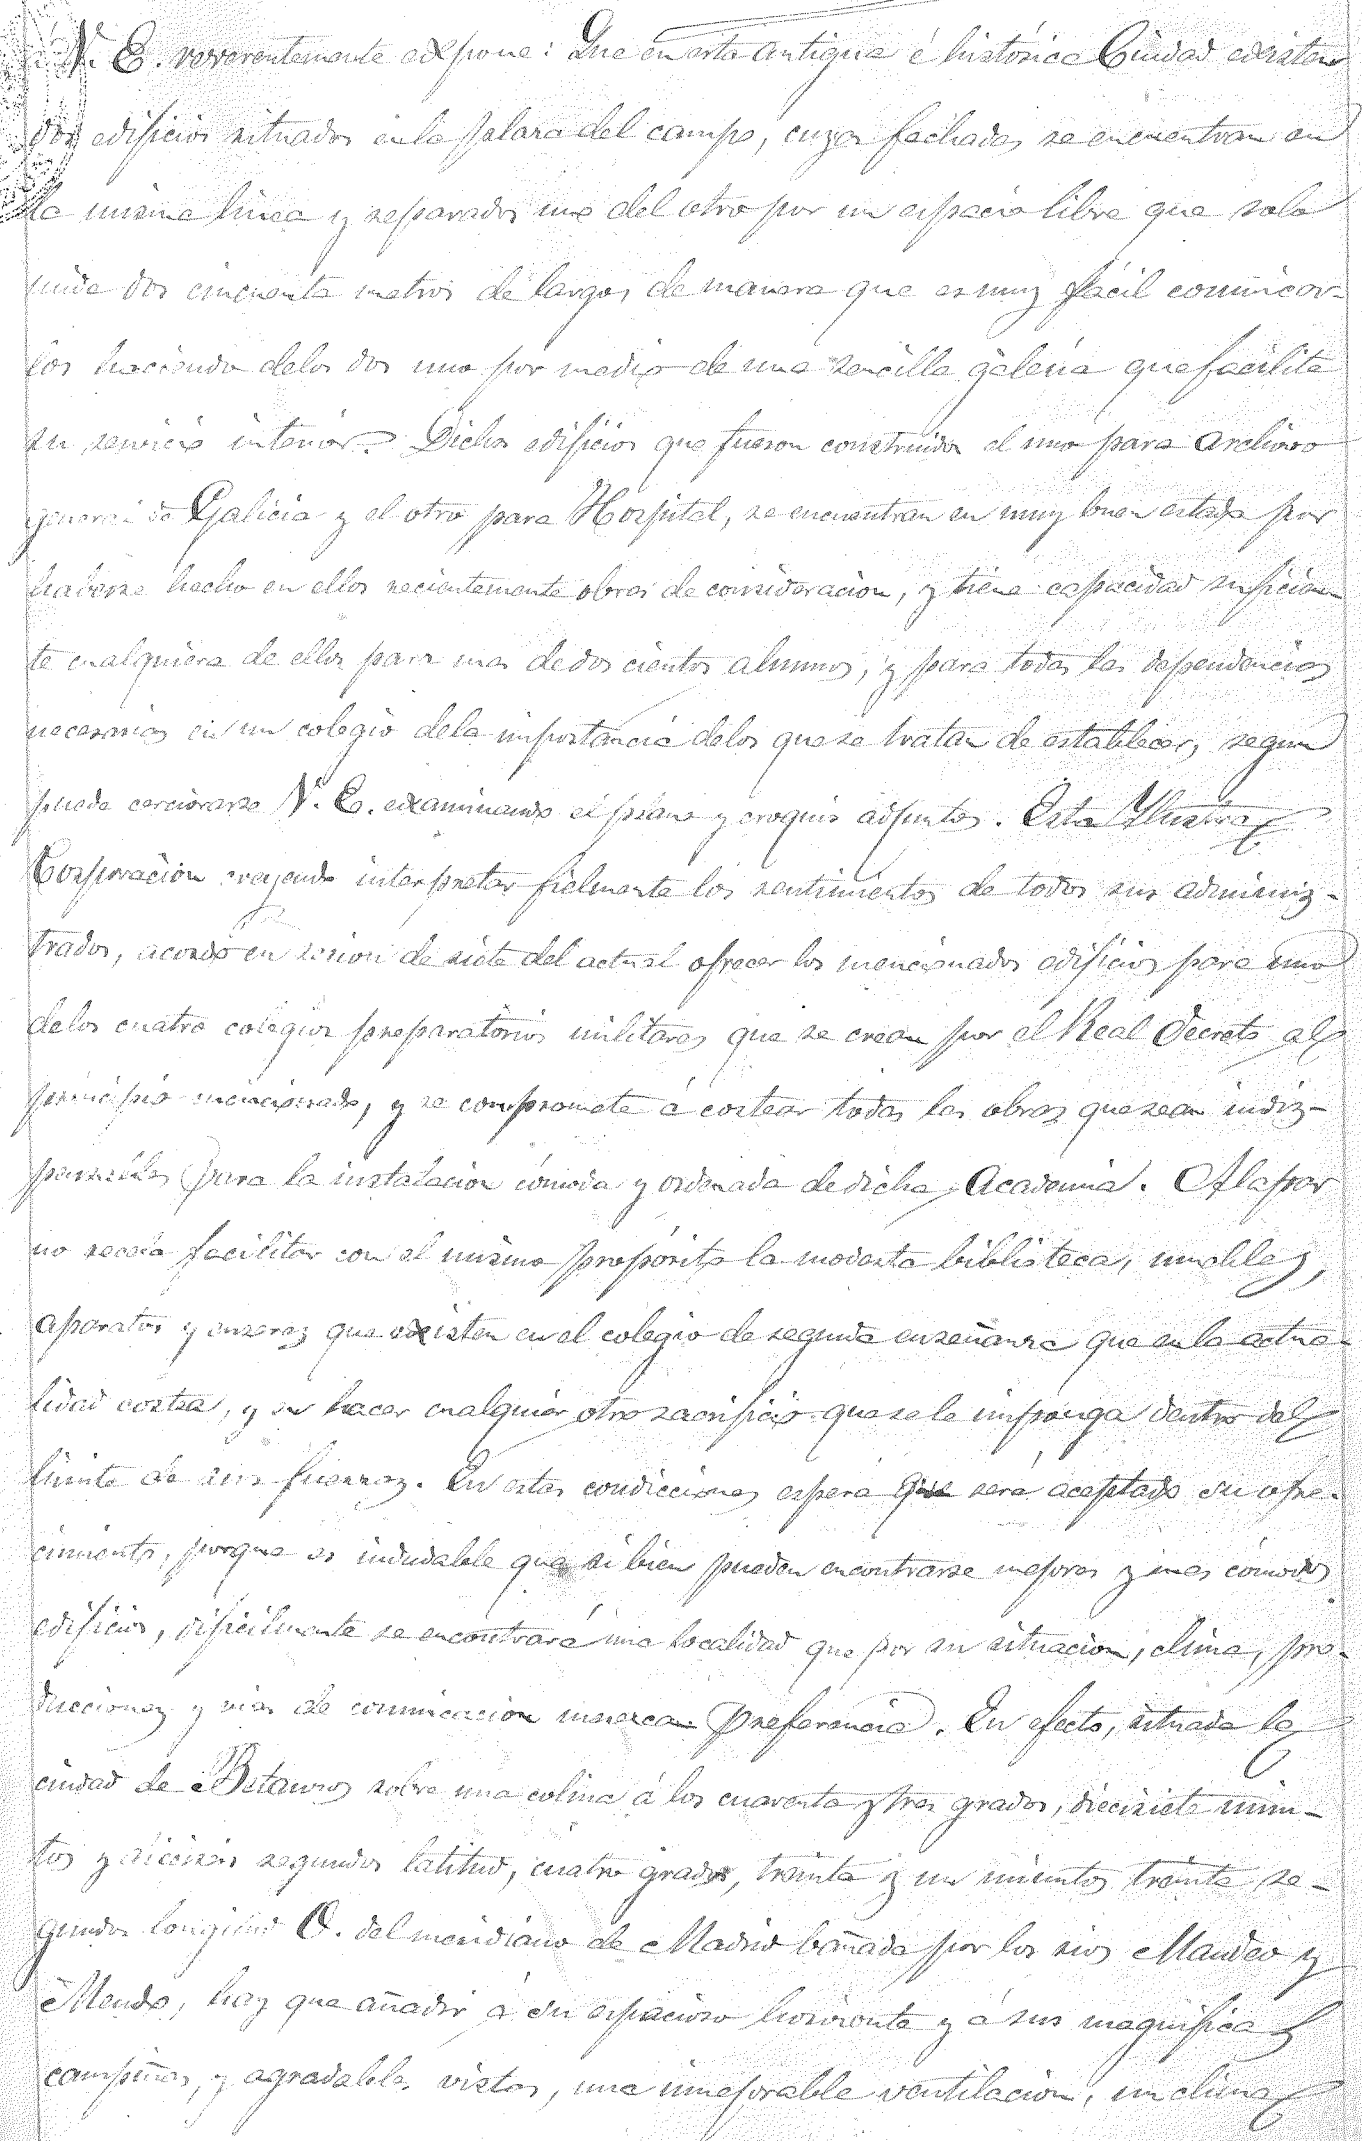 V. E. reverentemente expone: Que en esta antigua é histórica Ciudad existen
dos edificios situados en la plaza del campo, cuyas fachadas se encuentran en
la misma linea y separados uno del otro por un espacio libre que solo
mide dos cincuenta metros de largo, de manera que es muy fácil comunicar-
los haciendo delos dos uno por medio de una sencilla galeria que facilite
su servicio interior. Dichos edificios que fueron construidos el uno para archivo
general de Galicia y el otro para Hospital, se encuentran en muy buen estado por
haberse hecho en ellos recientemente obras de consideracion, y tiene capacidad suficien-
te cualquiera de ellos para mas de dos cientos alumnos, y para todas las dependencias
necesarias en un colegio dela importancia delos que se tratan de establecer, segun
puede cerciorarse V. E. examinando el plano y croquis adjuntos. Esta Ilustre
Corporacion creyendo interpretar fielmente los sentimientos de todos sus adminis-
trados, acordó en sesion de siete del actual ofrecer los mencionados edificios para uno
delos cuatro colegios preparatorios militares que se crean por el Real Decreto al
principio mencionado, y se compromete á costear todas las obras que sean indis-
pensables para la instalacion cómoda y ordenada de dicha Academia. A la par
no facilitar con el mismo propósito la modesta biblioteca, muebles,
aparatos y enseres que existen en el colegio de segunda enseñanza que en la actua-
lidad costea, y en hacer cualquier otro sacrificio que se le imponga dentro del
limite de sus fuerzas. En estas condicciones espera que será aceptado su ofre-
cimiento, porque es indudable que si bien pueden encontrarse mejores y mas cómodos
edificios, dificilmente se encontrará una localidad que por su situacion, clima, pro-
ducciones y vias de comunicacion merezca preferencia. En efecto, situada la
ciudad de Betanzos sobre una colina á los cuarenta y tres grados, diecisiete minu-
tos y dieciseis segundos latitud, cuatro grados, treinta y un minutos treinta se-
gundos longitud O. del meridiano de Madrid bañada por los rios Mandeo y
Mendo, hay que añadir á su espacioso horizonte y á sus magnificas
campiñas, y agradables vistas, una inmejorable ventilacion, un clima